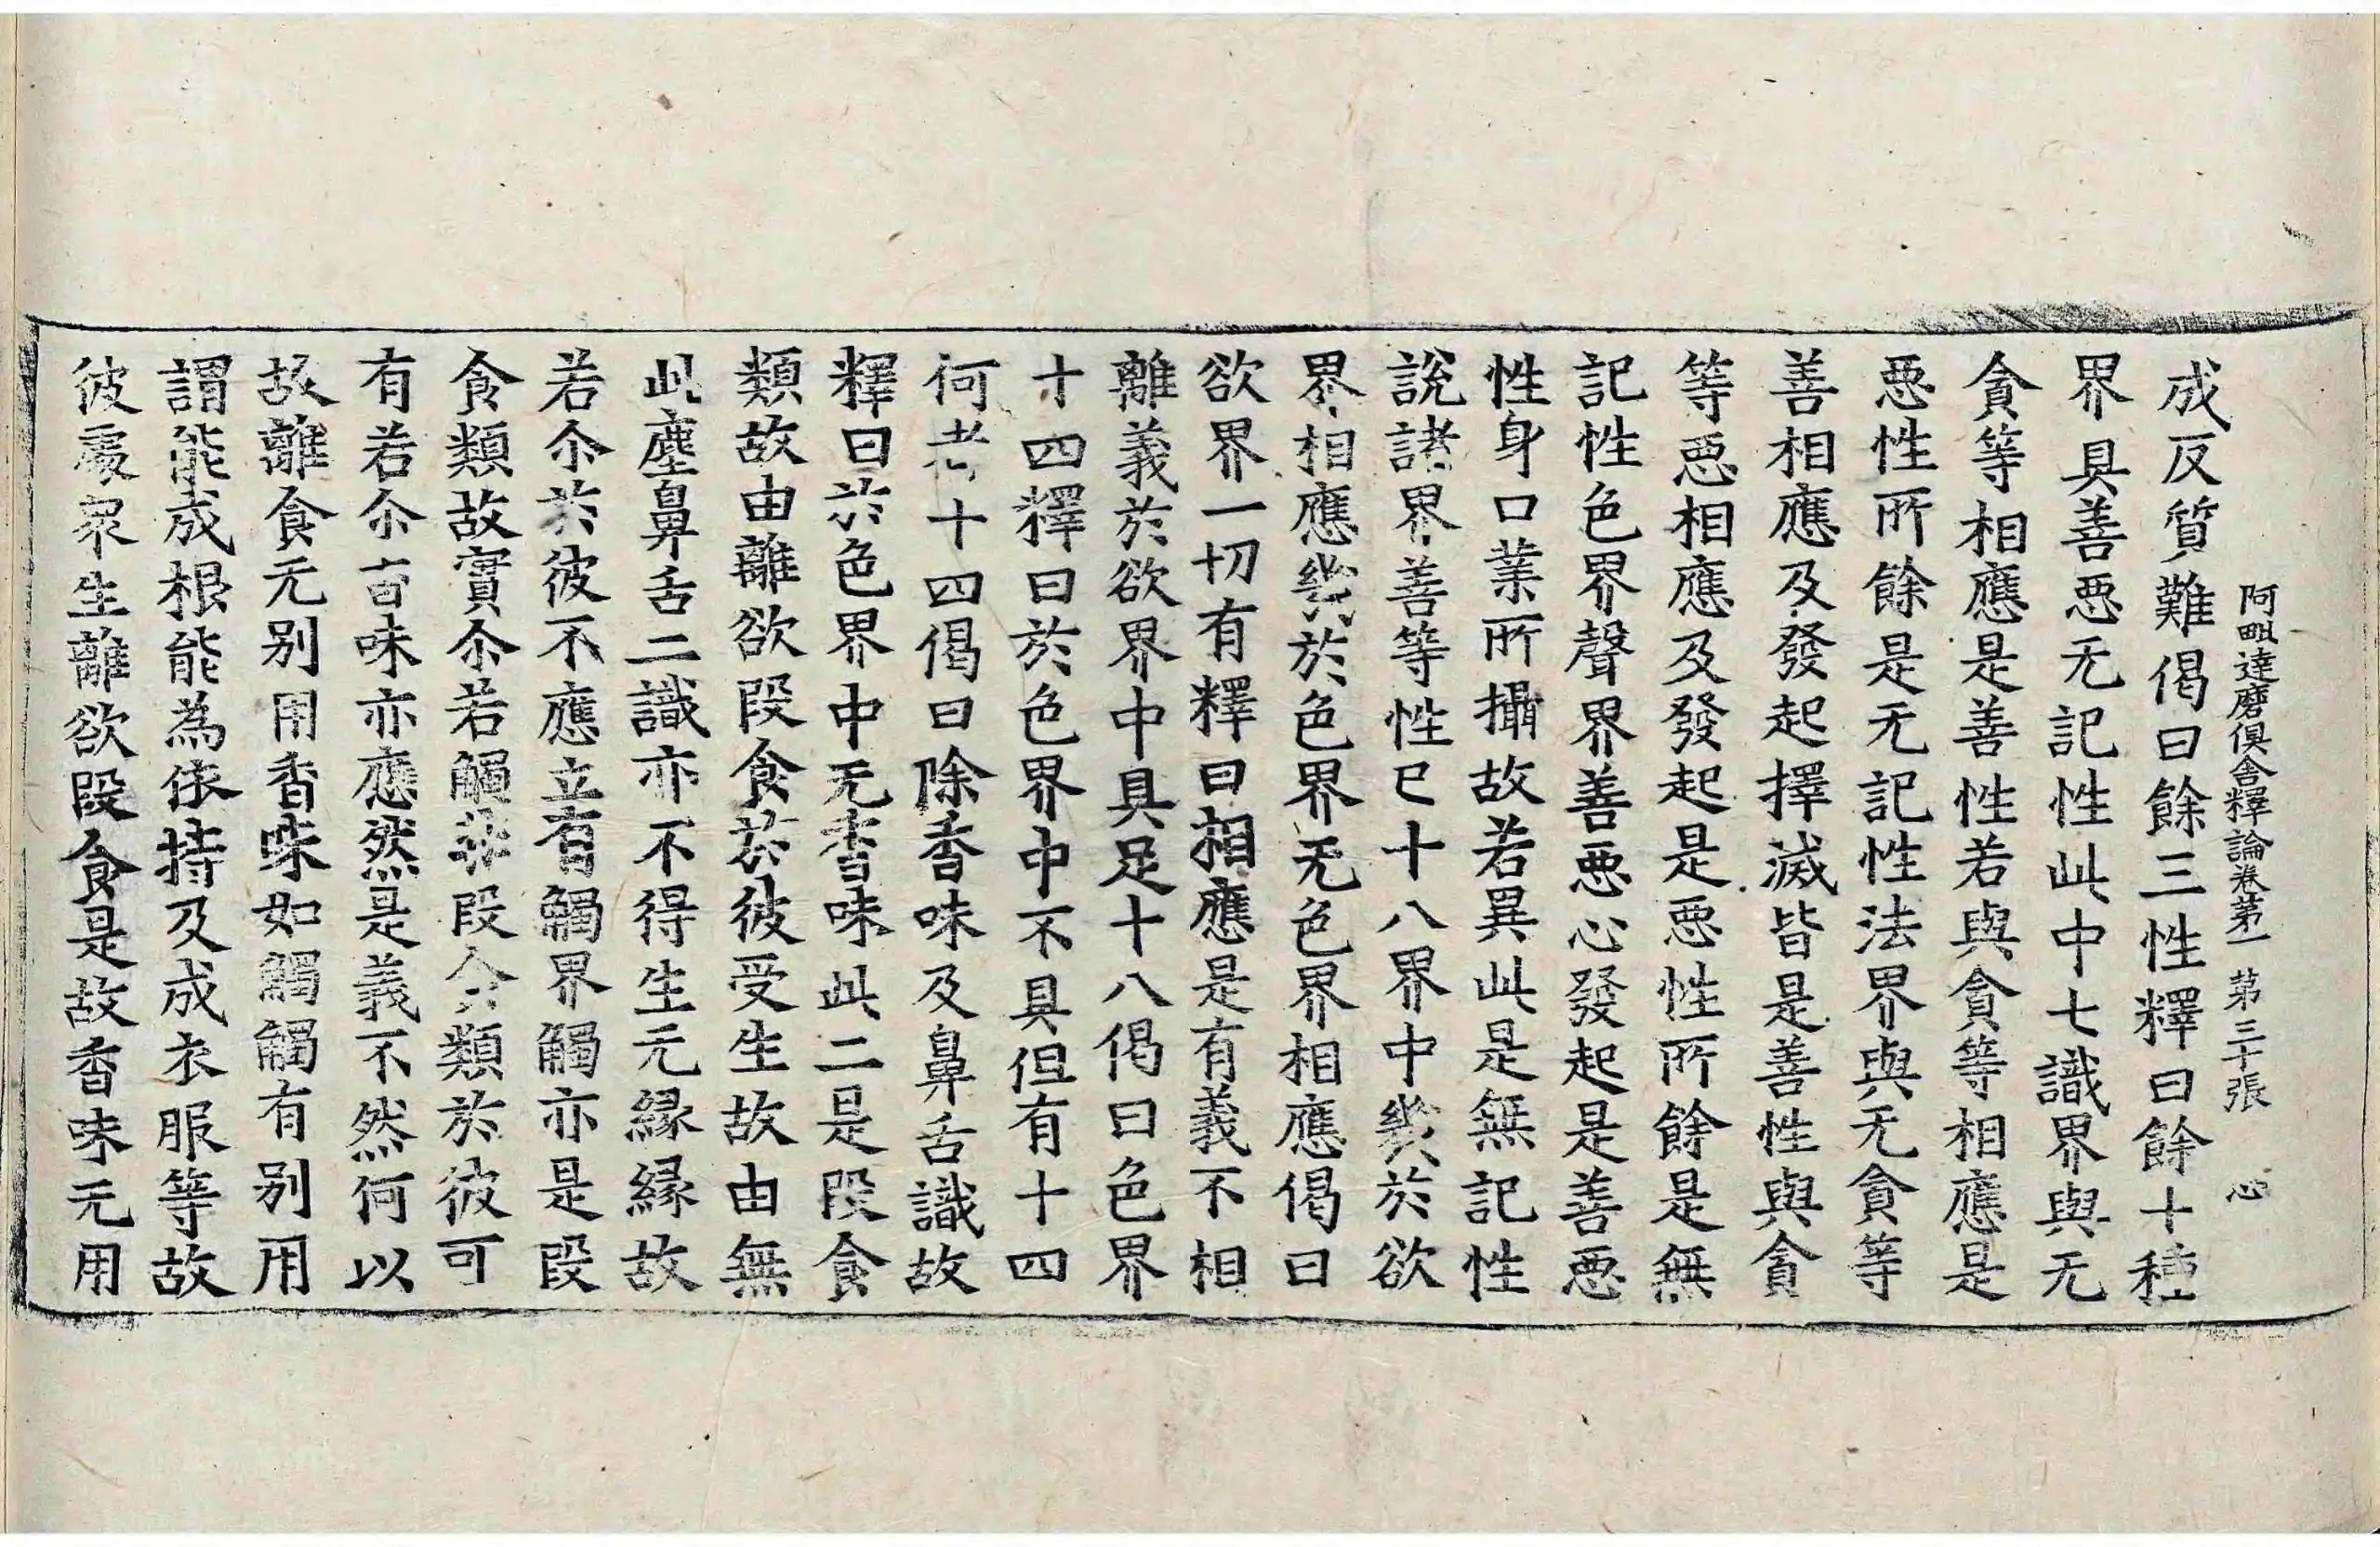 阿毗達磨俱舍釋論卷第一 第三十張 心
成反質難偈曰餘三性釋曰餘十種
界具善惡无記性此中七識界與无
貪等相應是善性若與貪等相應是
惡性所餘是无記性法界與无貪等
善相應及發起擇滅皆是善性與貪
等惡相應及發起是惡性所餘是無
記性色界聲界善惡心發起是善惡
性身口業所攝故若異此是無記性
說諸界善等性已十八界中幾於欲
界相應幾於色界无色界相應偈曰
欲界一切有釋曰相應是有義不相
離義於欲界中具足十八偈曰色界
十四釋曰於色界中不具但有十四
何者十四偈曰除香味及鼻舌識故
釋曰於色界中无香味此二是段食
類故由離欲段食於彼受生故由無
此塵鼻舌二識亦不得生无緣緣故
若尒於彼不應立有觸界觸亦是段
食類故實尒若觸非段食類於彼可
有若尒香味亦應然是義不然何以
故離食无別用香味如觸觸有別用
謂能成根能為依持及成衣服等故
彼處衆生離欲段食是故香味无用